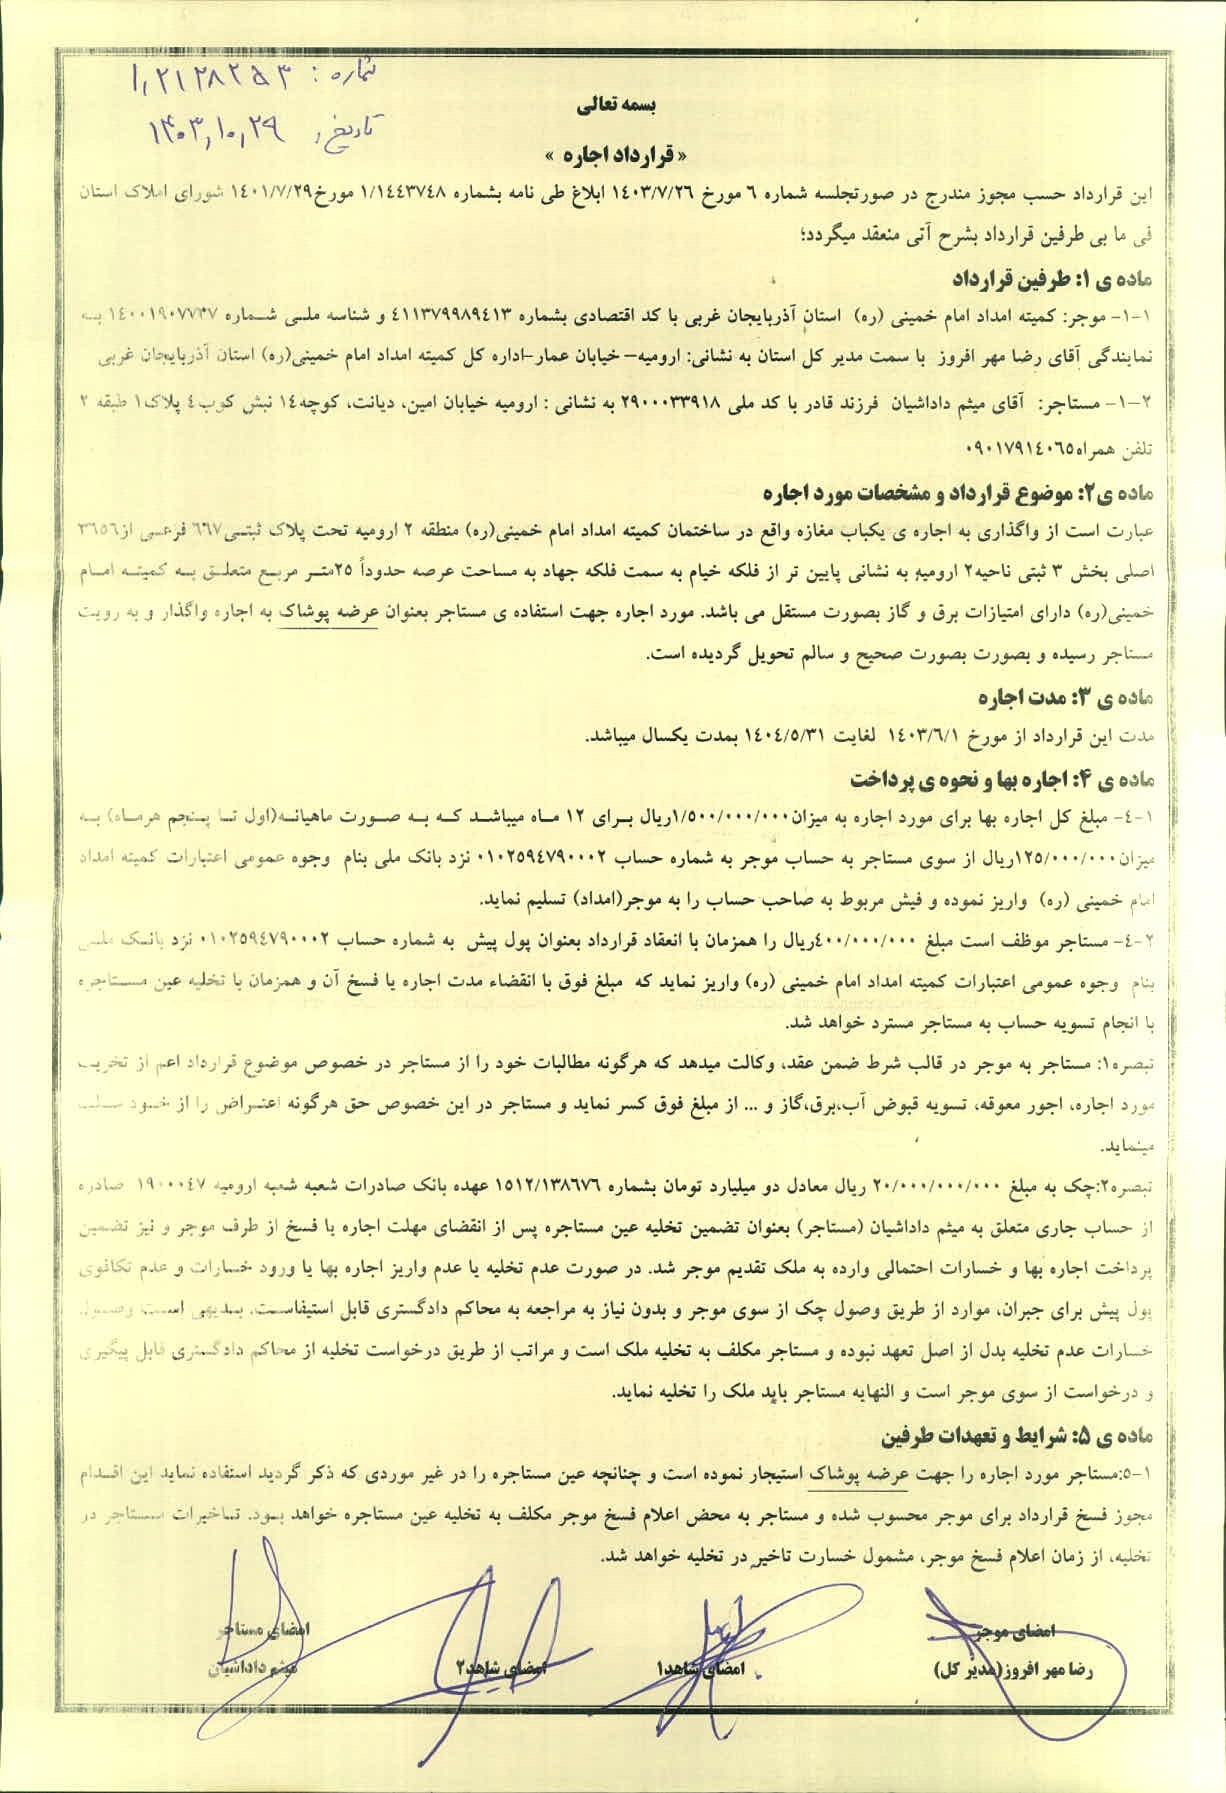 شماره: ۱٫۲۱۲۸۲۵۳
بسمه تعالی
تاریخ: ۱۴۰۳٫۱۰٫۲۹
« قرارداد اجاره »
این قرارداد حسب مجوز مندرج در صورتجلسه شماره ۶ مورخ ۱۴۰۳/۷/۲۶ ابلاغ طی نامه بشماره ۱/۱۴۴۳۷۴۸ مورخ۱۴۰۱/۷/۲۹ شورای املاک استان
فی ما بی طرفین قرارداد بشرح آتی منعقد میگردد؛
ماده ی ۱: طرفین قرارداد
۱-۱- موجر: کمیته امداد امام خمینی (ره) استان آذربایجان غربی با کد اقتصادی بشماره ۴۱۱۳۷۹۹۸۹۴۱۳ و شناسه ملی شماره ۱۴۰۰۱۹۰۷۷۴۷ به
نمایندگی آقای رضا مهر افروز با سمت مدیر کل استان به نشانی: ارومیه– خیابان عمار-اداره کل کمیته امداد امام خمینی(ره) استان آذربایجان غربی
۱-۲- مستاجر: آقای میثم داداشیان فرزند قادر با کد ملی ۲۹۰۰۰۳۳۹۱۸ به نشانی : ارومیه خیابان امین، دیانت، کوچه۱۴ نبش کوب۴ پلاک۱ طبقه ۲
تلفن همراه۰۹۰۱۷۹۱۴۰۶۵
ماده ی۲: موضوع قرارداد و مشخصات مورد اجاره
عبارت است از واگذاری به اجاره ی یکباب مغازه واقع در ساختمان کمیته امداد امام خمینی(ره) منطقه ۲ ارومیه تحت پلاک ثبتی۶۶۷ فرعی از۳۶۵۶
اصلی بخش ۳ ثبتی ناحیه۲ ارومیه به نشانی پایین تر از فلکه خیام به سمت فلکه جهاد به مساحت عرصه حدوداً ۲۵متر مربع متعلق به کمیته امام
خمینی(ره) دارای امتیازات برق و گاز بصورت مستقل می باشد. مورد اجاره جهت استفاده ی مستاجر بعنوان عرضه پوشاک به اجاره واگذار و به رویت
مستاجر رسیده و بصورت بصورت صحیح و سالم تحویل گردیده است.
ماده ی ۳: مدت اجاره
مدت این قرارداد از مورخ ۱۴۰۳/۶/۱ لغایت ۱۴۰۴/۵/۳۱ بمدت یکسال میباشد.
ماده ی ۴: اجاره بها و نحوه ی پرداخت
۴-۱- مبلغ کل اجاره بها برای مورد اجاره به میزان۱/۵۰۰/۰۰۰/۰۰۰ریال برای ۱۲ ماه میباشد که به صورت ماهیانه(اول تا پنجم هرماه) به
میزان۱۲۵/۰۰۰/۰۰۰ریال از سوی مستاجر به حساب موجر به شماره حساب ۰۱۰۲۵۹۴۷۹۰۰۰۲ نزد بانک ملی بنام وجوه عمومی اعتبارات کمیته امداد
امام خمینی (ره) واریز نموده و فیش مربوط به صاحب حساب را به موجر(امداد) تسلیم نماید.
۴-۲- مستاجر موظف است مبلغ ۴۰۰/۰۰۰/۰۰۰ریال را همزمان با انعقاد قرارداد بعنوان پول پیش به شماره حساب ۰۱۰۲۵۹۴۷۹۰۰۰۲ نزد بانک ملی
بنام وجوه عمومی اعتبارات کمیته امداد امام خمینی (ره) واریز نماید که مبلغ فوق با انقضاء مدت اجاره یا فسخ آن و همزمان با تخلیه عین مستاجره
با انجام تسویه حساب به مستاجر مسترد خواهد شد.
تبصره۱: مستاجر به موجر در قالب شرط ضمن عقد، وکالت میدهد که هرگونه مطالبات خود را از مستاجر در خصوص موضوع قرارداد اعم از تخریب
مورد اجاره، اجور معوقه، تسویه قبوض آب،برق،گاز و ... از مبلغ فوق کسر نماید و مستاجر در این خصوص حق هرگونه اعتراض را از خود سلب
مینماید.
تبصره۲:چک به مبلغ ۲۰/۰۰۰/۰۰۰/۰۰۰ ریال معادل دو میلیارد تومان بشماره ۱۵۱۲/۱۳۸۶۷۶ عهده بانک صادرات شعبه شعبه ارومیه ۱۹۰۰۰۴۷ صادره
از حساب جاری متعلق به میثم داداشیان (مستاجر) بعنوان تضمین تخلیه عین مستاجره پس از انقضای مهلت اجاره یا فسخ از طرف موجر و نیز تضمین
پرداخت اجاره بها و خسارات احتمالی وارده به ملک تقدیم موجر شد. در صورت عدم تخلیه یا عدم واریز اجاره بها یا ورود خسارات و عدم تکافوی
پول پیش برای جبران، موارد از طریق وصول چک از سوی موجر و بدون نیاز به مراجعه به محاکم دادگستری قابل استیفاست. بدیهی است وصول
خسارات عدم تخلیه بدل از اصل تعهد نبوده و مستاجر مکلف به تخلیه ملک است و مراتب از طریق درخواست تخلیه از محاکم دادگستری قابل پیگیری
و درخواست از سوی موجر است و النهایه مستاجر باید ملک را تخلیه نماید.
ماده ی ۵: شرایط و تعهدات طرفین
۵-۱:مستاجر مورد اجاره را جهت عرضه پوشاک استیجار نموده است و چنانچه عین مستاجره را در غیر موردی که ذکر گردید استفاده نماید این اقدام
مجوز فسخ قرارداد برای موجر محسوب شده و مستاجر به محض اعلام فسخ موجر مکلف به تخلیه عین مستاجره خواهد بود. تاخیرات مستاجر در
تخلیه، از زمان اعلام فسخ موجر، مشمول خسارت تاخیر در تخلیه خواهد شد.
امضای موجر امضای مستاجر
رضا مهر افروز(مدیر کل) امضای شاهد۱ امضای شاهد۲ میثم داداشیان